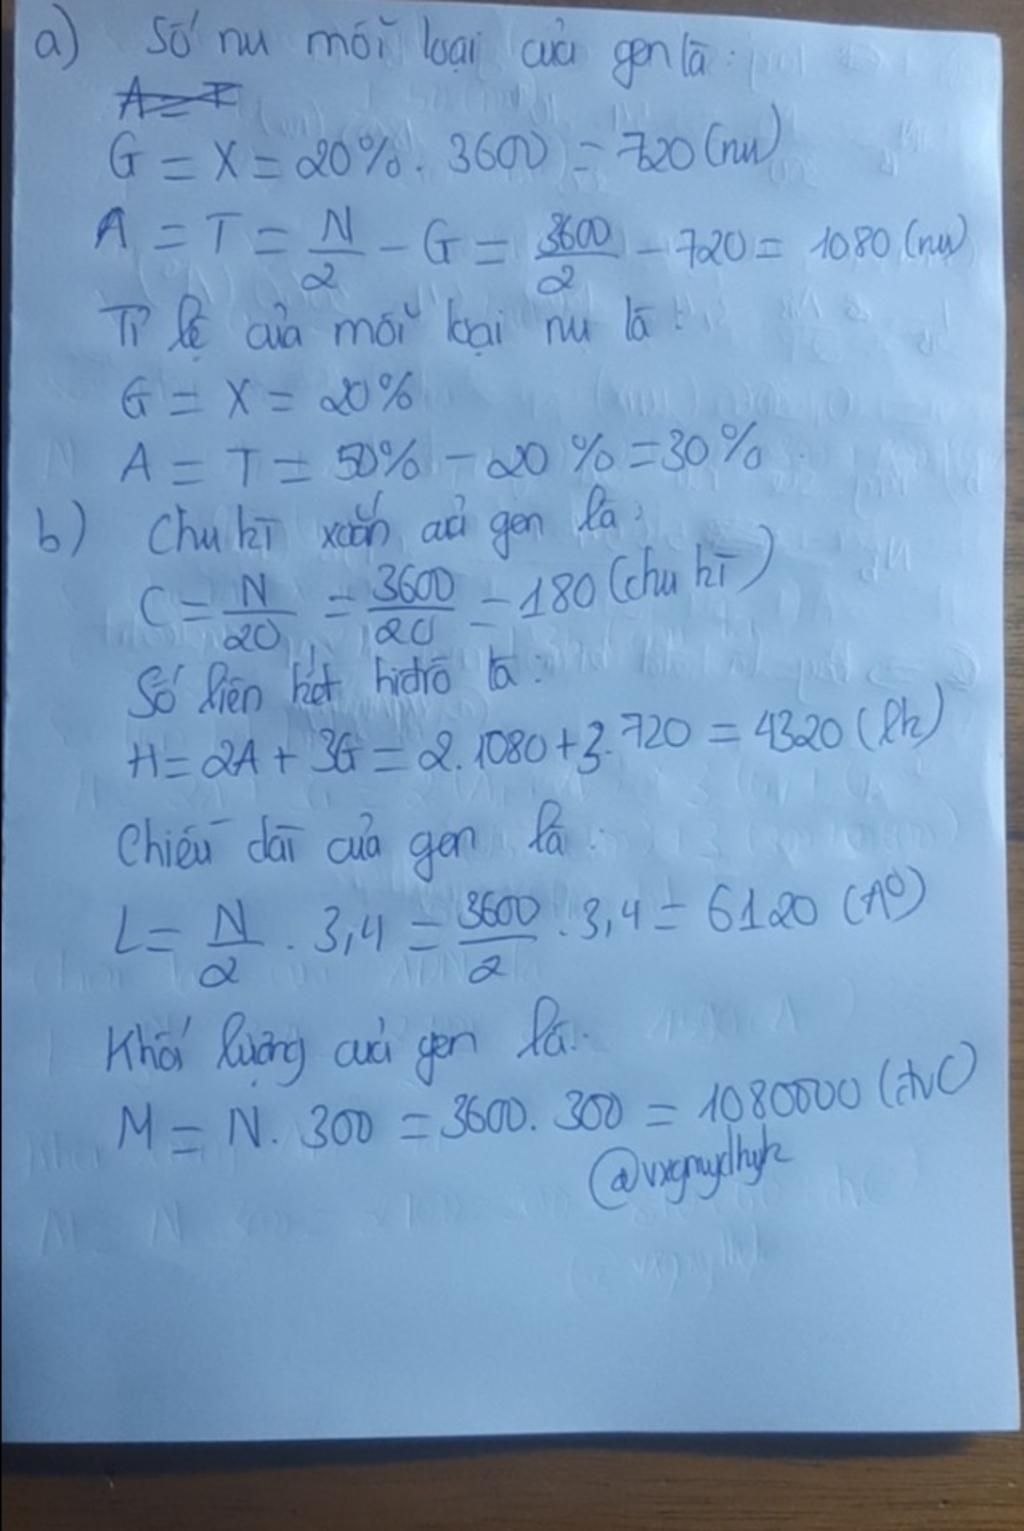 a) Số nu mỗi loại của gen là:
A = T
G = X = 20%. 3600 = 720 (nu)
A = T = N/2 - G = 3600/2 - 720 = 1080 (nu)
Tỉ lệ của mỗi loại nu là:
G = X = 20%
A = T = 50% - 20% = 30%
b) Chu kì xoắn của gen là:
C = N/20 = 3600/20 = 180 (chu kì)
Số liên kết hiđrô là:
H = 2A + 3G = 2.1080 + 3.720 = 4320 (lk)
Chiều dài của gen là:
L = N/2 . 3,4 = 3600/2 . 3,4 = 6120 (A⁰)
Khối lượng của gen là:
M = N. 300 = 3600. 300 = 1080000 (đvC)